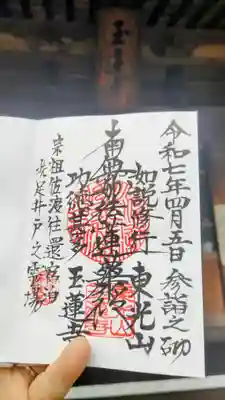 令和七年四月五日 参詣之砌
東光山
如説修行
南無妙法蓮華経
功徳甚多
玉蓮寺
宗祖佐渡往還
井戸之霊場